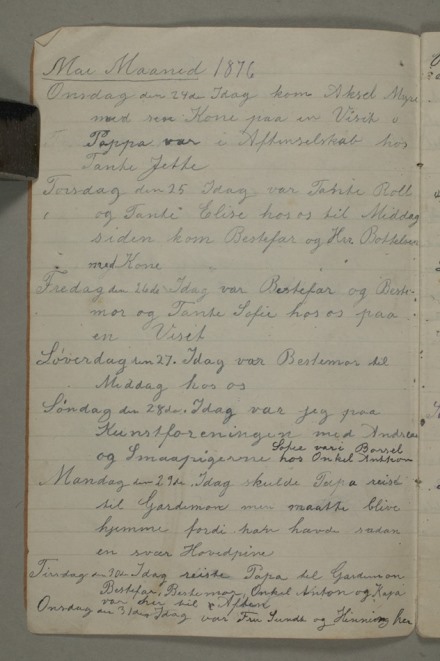 Mai Maaned 1876
Onsdag den 24de Idag kom Aksel Myre
med sin Kone paa en Visit
Pappa var i Aftenselskab hos
Tante Jette
Torsdag den 25 Idag var Tante Roll
og Tante Elise hos os til Middag
siden kom Bestefar og Hrr
med Kone
Fredag den 26de Idag var Bestefar og Beste-
mor og Tante Sofie hos os paa
en Visit
Løverdag den 27. Idag var Bestemor til
Middag hos os
Søndag den 28de. Idag var jeg paa
Kunstforeningen med Andrea
og Smaapigerne Sofie var i Barsel
hos Onkel Anthon
Mandag den 29de. Idag skulde Papa reist
til Gardemon men maatte blive
hjemme fordi han havde sadan
en svær Hovedpine
Tirsdag den 30de Idag reiste Papa til Gardemon
Bestefar, Bestemor, Onkel Anton og Kaja
var her til Aften
Onsdag den 31de Idag var Fru Sundt og Henning her